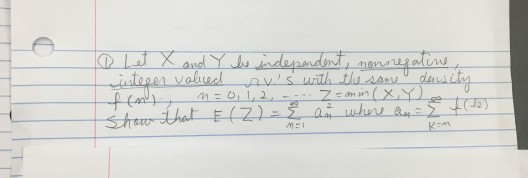 ① Let X and Y be independent, nonnegative,
integer valued r.v's with the same density
f(n), n = 0, 1, 2, ---- Z = min(X, Y)
Show that E(Z) = ∑_{n=1}^{∞} a_n^2 where a_n = ∑_{k=n}^{∞} f(k)